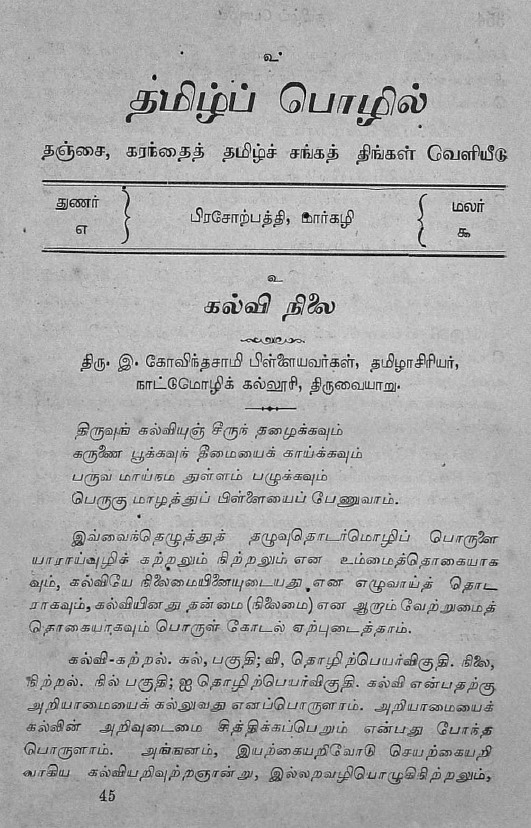 உ
தமிழ்ப் பொழில்
தஞ்சை, கரந்தைத் தமிழ்ச் சங்கத் திங்கள் வெளியீடு
துணர்
எ
பிரசோற்பத்தி, மார்கழி
மலர்
௯
உ
கல்வி நிலை
திரு. இ. கோவிந்தசாமி பிள்ளையவர்கள், தமிழாசிரியர்,
நாட்டுமொழிக் கல்லூரி, திருவையாறு.
திருவுங் கல்வியுஞ் சீருந் தழைக்கவும்
கருணை பூக்கவுந் தீமையைக் காய்க்கவும்
பருவ மாய்நம துள்ளம் பழுக்கவும்
பெருகு மாழத்துப் பிள்ளையைப் பேணுவாம்.
இவ்வைந்தெழுத்துத் தழுவுதொடர்மொழிப் பொருளை
யாராய்வுழிக் கற்றலும் நிற்றலும் என உம்மைத்தொகையாக
வும், கல்வியே நிலைமையினையுடையது என எழுவாய்த் தொட
ராகவும், கல்வியினது தன்மை (நிலைமை) என ஆரும் வேற்றுமைத்
தொகையாகவும் பொருள் கோடல் ஏற்புடைத்தாம்.
கல்வி-கற்றல். கல், பகுதி; வி, தொழிற்பெயர்விகுதி. நிலை,
நிற்றல். நில் பகுதி; ஐ தொழிற்பெயர்விகுதி. கல்வி என்பதற்கு
அறியாமையைக் கல்லுவது எனப்பொருளாம். அறியாமையைக்
கல்லின் அறிவுடைமை சித்திக்கப்பெறும் என்பது போந்த
பொருளாம். அங்ஙனம், இயற்கையறிவோடு செயற்கையறி
வாகிய கல்வியறிவுற்றஞான்று, இல்லறவழியொழுகிநிற்றலும்,
45